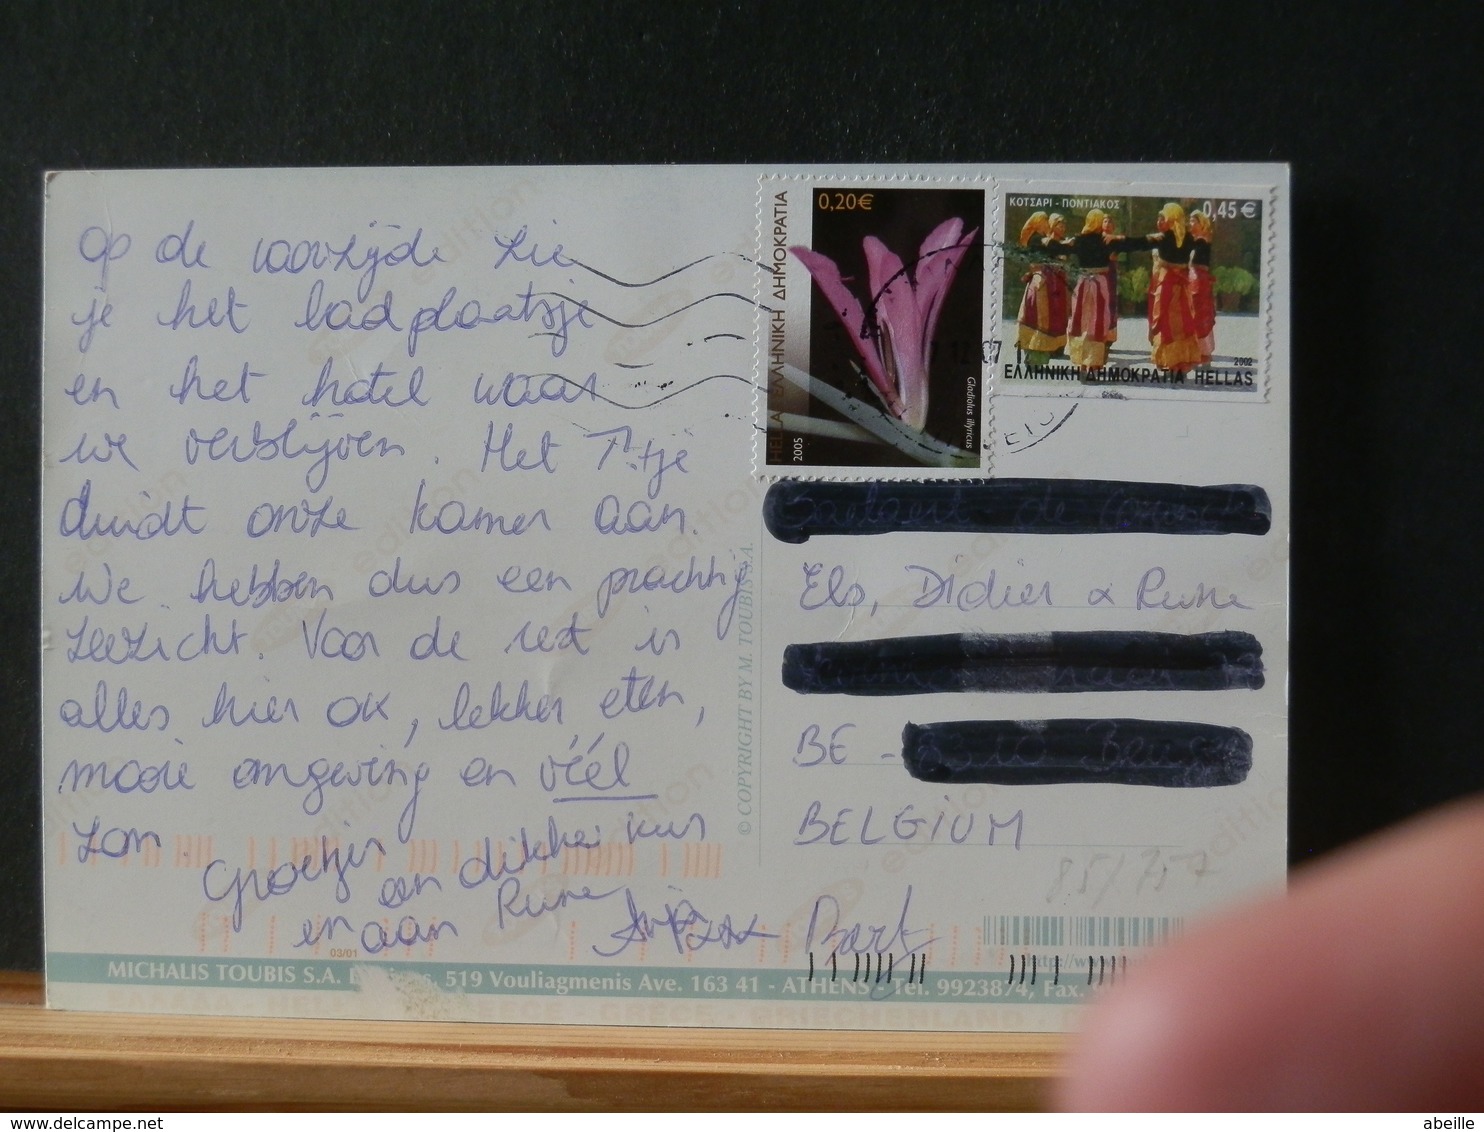 Op de voorzijde zie
je het badplaatsje
en het hotel waar
we verblijven. Het Pijltje
duidt onze kamer aan.
We hebben dus een prachtig
zeezicht. Voor de rest is
alles hier OK, lekker eten,
mooie omgeving en véél
zon.
Groetjes
en dikke kus
en aan Rune
Bart
0,20€
ΕΛΛΗΝΙΚΗ ΔΗΜΟΚΡΑΤΙΑ
HELLAS
2005
Gladiolus illyricus
ΚΟΤΣΑΡΙ - ΠΟΝΤΙΑΚΟΣ
0,45€
2002
ΕΛΛΗΝΙΚΗ ΔΗΜΟΚΡΑΤΙΑ HELLAS
12 07
Els, Didier & Rune
BE -
BELGIUM
85/757
© COPYRIGHT BY M. TOUBIS S.A.
03/01
MICHALIS TOUBIS S.A. 519 Vouliagmenis Ave. 163 41 - ATHENS - Tel. 9923874, Fax.
GREECE - GRECE - GRIECHENLAND
edition
abeille